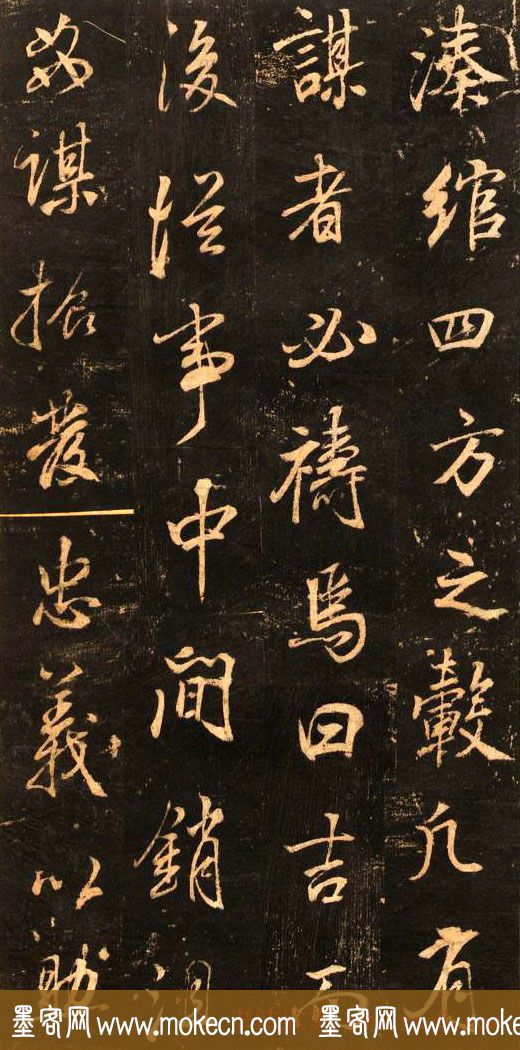 湊綰四方之轂凡有
謀者必禱焉曰吉而
後從事中間銷沮
姦謀振發忠義以
墨客网 www.mokecn.com 墨客网 www.mokecn.com